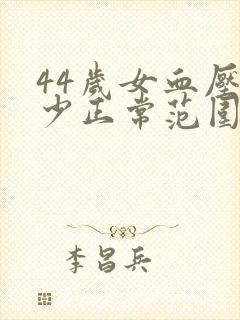 44歲女血壓
少正常范圍
李昌兵